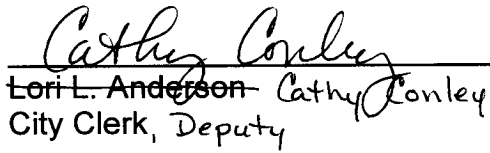 Cathy Conley
Lori L. Anderson Cathy Conley
City Clerk, Deputy